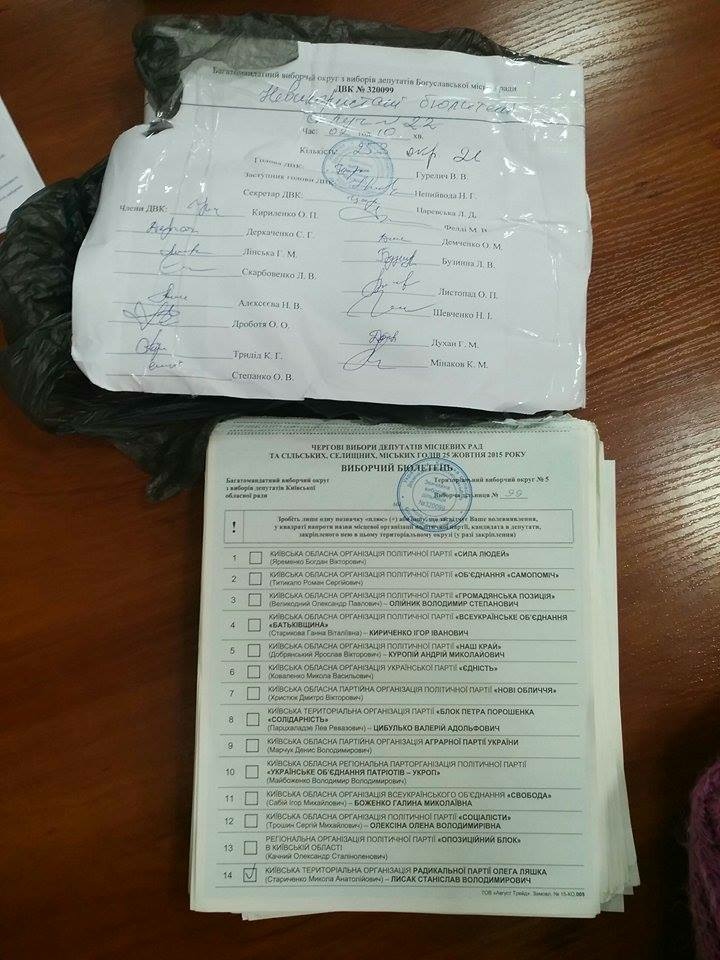 Багатомандатний виборчий округ з виборів депутатів Богуславської місь ради
ДВК № 320099
Невикористані бюлетені
22
Час: 02 год 10 хв.
Кількість 253 окр 21
Голова ДВК: Гурелич В. В.
Заступник голови ДВК: Непийвода Н. Г.
Секретар ДВК: Царевська Л. Д.
Члени ДВК: Кириленко О. П.
М. В.
Деркаченко С. Г. Демченко О. М.
Лінська Г. М. Бузинна Л. В.
Скарбовенко Л. В.
Листопад О. П.
Алєксєєва Н. В. Шевченко Н. І.
Дроботя О. О.
Духан Г. М.
Тридід К. Г. Мінаков К. М.
Степанко О. В.
ЧЕРГОВІ ВИБОРИ ДЕПУТАТІВ МІСЦЕВИХ РАД
ТА СІЛЬСЬКИХ, СЕЛИЩНИХ, МІСЬКИХ ГОЛІВ 25 ЖОВТНЯ 2015 РОКУ
ВИБОРЧИЙ БЮЛЕТЕНЬ
Багатомандатний виборчий округ
з виборів депутатів Київської
обласної ради
Територіальний виборчий округ № 5
Виборча дільниця № 99
№320099
! Зробіть лише одну позначку «плюс» (+) або іншу, що засвідчує Ваше волевиявлення,
у квадраті напроти назви місцевої організації політичної партії, кандидата в депутати,
закріпленого нею в цьому територіальному окрузі (у разі закріплення)
1 КИЇВСЬКА ОБЛАСНА ОРГАНІЗАЦІЯ ПОЛІТИЧНОЇ ПАРТІЇ «СИЛА ЛЮДЕЙ»
(Яременко Богдан Вікторович)
2 КИЇВСЬКА ОБЛАСНА ОРГАНІЗАЦІЯ ПОЛІТИЧНОЇ ПАРТІЇ «ОБ'ЄДНАННЯ «САМОПОМІЧ»
(Титикало Роман Сергійович)
3 КИЇВСЬКА ОБЛАСНА ОРГАНІЗАЦІЯ ПОЛІТИЧНОЇ ПАРТІЇ «ГРОМАДЯНСЬКА ПОЗИЦІЯ»
(Великодний Олександр Павлович) – ОЛІЙНИК ВОЛОДИМИР СТЕПАНОВИЧ
4 КИЇВСЬКА ОБЛАСНА ОРГАНІЗАЦІЯ ПОЛІТИЧНОЇ ПАРТІЇ «ВСЕУКРАЇНСЬКЕ ОБ'ЄДНАННЯ
«БАТЬКІВЩИНА»
(Старикова Ганна Віталіївна) – КИРИЧЕНКО ІГОР ІВАНОВИЧ
5 КИЇВСЬКА ОБЛАСНА ОРГАНІЗАЦІЯ ПОЛІТИЧНОЇ ПАРТІЇ «НАШ КРАЙ»
(Добрянський Ярослав Вікторович) – КУРОПІЙ АНДРІЙ МИКОЛАЙОВИЧ
6 КИЇВСЬКА ОБЛАСНА ОРГАНІЗАЦІЯ УКРАЇНСЬКОЇ ПАРТІЇ «ЄДНІСТЬ»
(Коваленко Микола Васильович)
7 КИЇВСЬКА ОБЛАСНА ПАРТІЙНА ОРГАНІЗАЦІЯ ПОЛІТИЧНОЇ ПАРТІЇ «НОВІ ОБЛИЧЧЯ»
(Христюк Дмитро Вікторович)
8 КИЇВСЬКА ТЕРИТОРІАЛЬНА ОРГАНІЗАЦІЯ ПАРТІЇ «БЛОК ПЕТРА ПОРОШЕНКА
«СОЛІДАРНІСТЬ»
(Парцхаладзе Лев Ревазович) – ЦИБУЛЬКО ВАЛЕРІЙ АДОЛЬФОВИЧ
9 КИЇВСЬКА ОБЛАСНА ПАРТІЙНА ОРГАНІЗАЦІЯ АГРАРНОЇ ПАРТІЇ УКРАЇНИ
(Марчук Денис Володимирович)
10 КИЇВСЬКА ОБЛАСНА РЕГІОНАЛЬНА ПАРТОРГАНІЗАЦІЯ ПОЛІТИЧНОЇ ПАРТІЇ
«УКРАЇНСЬКЕ ОБ'ЄДНАННЯ ПАТРІОТІВ – УКРОП»
(Майбоженко Володимир Володимирович)
11 КИЇВСЬКА ОБЛАСНА ОРГАНІЗАЦІЯ ВСЕУКРАЇНСЬКОГО ОБ'ЄДНАННЯ «СВОБОДА»
(Сабій Ігор Михайлович) – БОЖЕНКО ГАЛИНА МИКОЛАЇВНА
12 КИЇВСЬКА ОБЛАСНА ОРГАНІЗАЦІЯ ПОЛІТИЧНОЇ ПАРТІЇ «СОЦІАЛІСТИ»
(Трошин Сергій Михайлович) – ОЛЕКСІНА ОЛЕНА ВОЛОДИМИРІВНА
13 РЕГІОНАЛЬНА ОРГАНІЗАЦІЯ ПОЛІТИЧНОЇ ПАРТІЇ «ОПОЗИЦІЙНИЙ БЛОК»
В КИЇВСЬКІЙ ОБЛАСТІ
(Качний Олександр Сталіноленович)
14 КИЇВСЬКА ТЕРИТОРІАЛЬНА ОРГАНІЗАЦІЯ РАДИКАЛЬНОЇ ПАРТІЇ ОЛЕГА ЛЯШКА
(Стариченко Микола Анатолійович) – ЛИСАК СТАНІСЛАВ ВОЛОДИМИРОВИЧ
ТОВ «Август Трейд». Замовл. № 15-КО.005